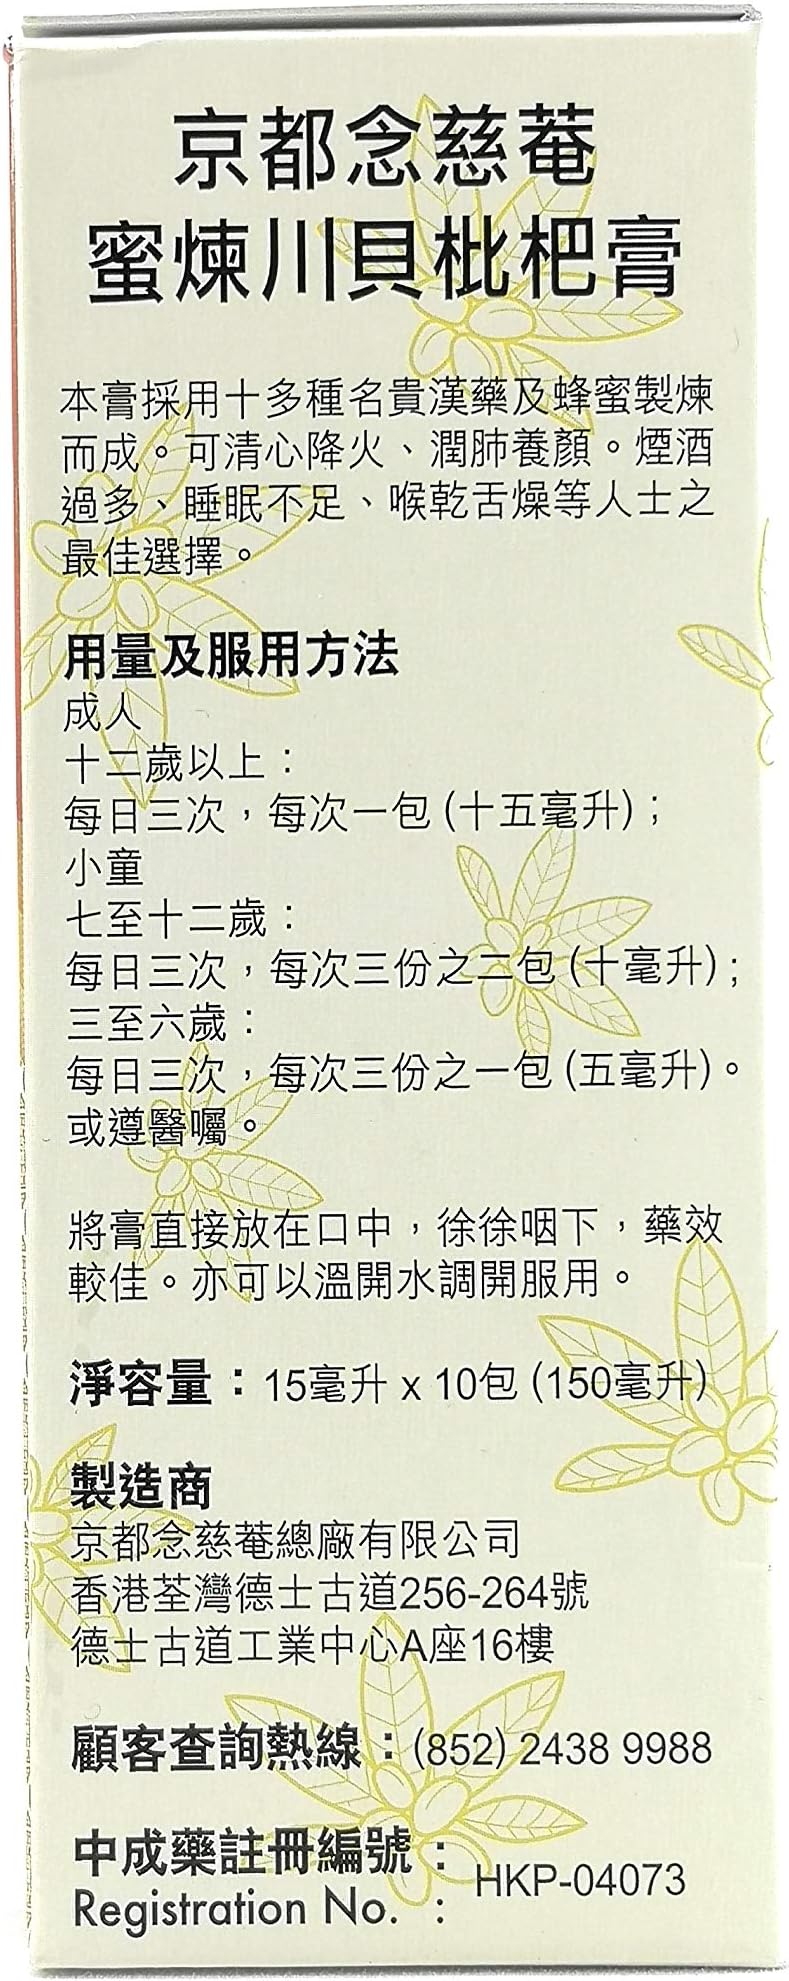 京都念慈菴
蜜煉川貝枇杷膏
本膏採用十多種名貴漢藥及蜂蜜製煉
而成。可清心降火、潤肺養顏。煙酒
過多、睡眠不足、喉乾舌燥等人士之
最佳選擇。
用量及服用方法
成人
十二歲以上：
每日三次，每次一包 (十五毫升)；
小童
七至十二歲：
每日三次，每次三份之二包 (十毫升)；
三至六歲：
每日三次，每次三份之一包 (五毫升)。
或遵醫囑。
將膏直接放在口中，徐徐咽下，藥效
較佳。亦可以溫開水調開服用。
淨容量：15毫升 x 10包 (150毫升)
製造商
京都念慈菴總廠有限公司
香港荃灣德士古道256-264號
德士古道工業中心A座16樓
顧客查詢熱線：(852) 2438 9988
中成藥註冊編號：
Registration No. : HKP-04073